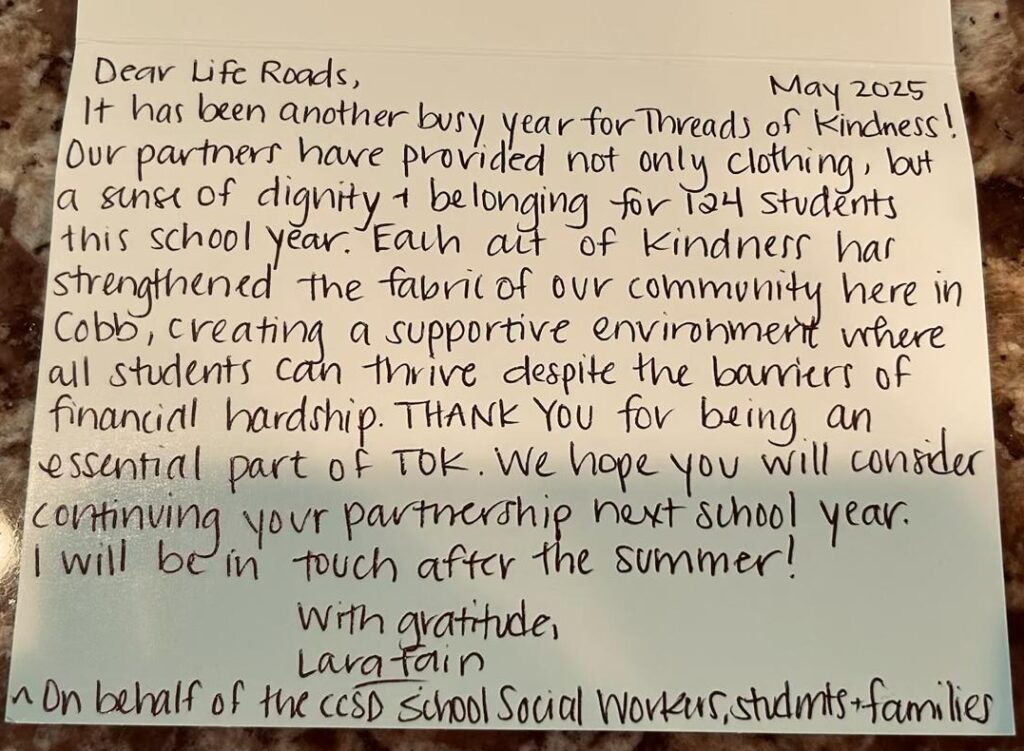 Dear Life Roads,
May 2025
It has been another busy year for Threads of Kindness!
Our partners have provided not only clothing, but
a sense of dignity + belonging for 124 students
this school year. Each act of kindness has
strengthened the fabric of our community here in
Cobb, creating a supportive environment where
all students can thrive despite the barriers of
financial hardship. THANK YOU for being an
essential part of TOK. We hope you will consider
continuing your partnership next school year.
I will be in touch after the summer!
With gratitude,
Lara Fain
~ On behalf of the CCSD School Social Workers, students + families